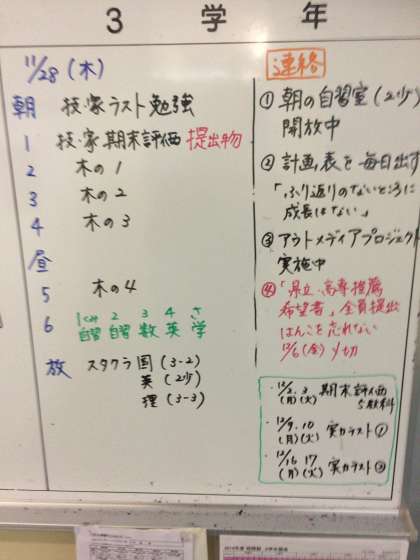 3 学 年
11/28 (木)
朝 技・家ラスト勉強
1 技・家期末評価 提出物
2 木の1
3 木の2
4 木の3
昼
5 木の4
6 1組 2 3 4 さ
自習 自習 数 英 学
放 スタクラ 国 (3-2)
英 (2少)
理 (3-3)
連絡
① 朝の自習室 (2少)
開放中
② 計画表を毎日出す
「ふり返りのないところに
成長はない。」
③ アウトメディアプロジェクト
実施中
④ 「県立・高専推薦
希望書」全員提出
はんこを忘れない
12/6(金) 〆切
・12/2, 3 期末評価
(月)(火) 5教科
・12/9, 10 実力テスト①
(月)(火)
・12/16 17 実力テスト②
(月)(火)